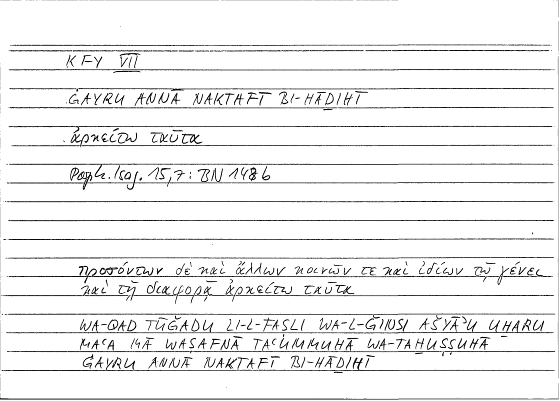 KFY VII
ĠAYRU ANNĀ NAKTAFĪ BI-HĀḎIHĪ
ἀρκείτω ταῦτα
Porph. Isag. 15,7: BN 148b
προσόντων δὲ καὶ ἄλλων κοινῶν τε καὶ ἰδίων τῷ γένει
καὶ τῇ διαφορᾷ ἀρκείτω ταῦτα
WA-QAD TŪĞADU LI-L-FAṢLI WA-L-ĞINSI AŠYĀʾU UḪARU
MAʿA MĀ WAṢAFNĀ TAʿUMMUHĀ WA-TAḪUṢṢUHĀ
ĠAYRU ANNĀ NAKTAFĪ BI-HĀḎIHĪ